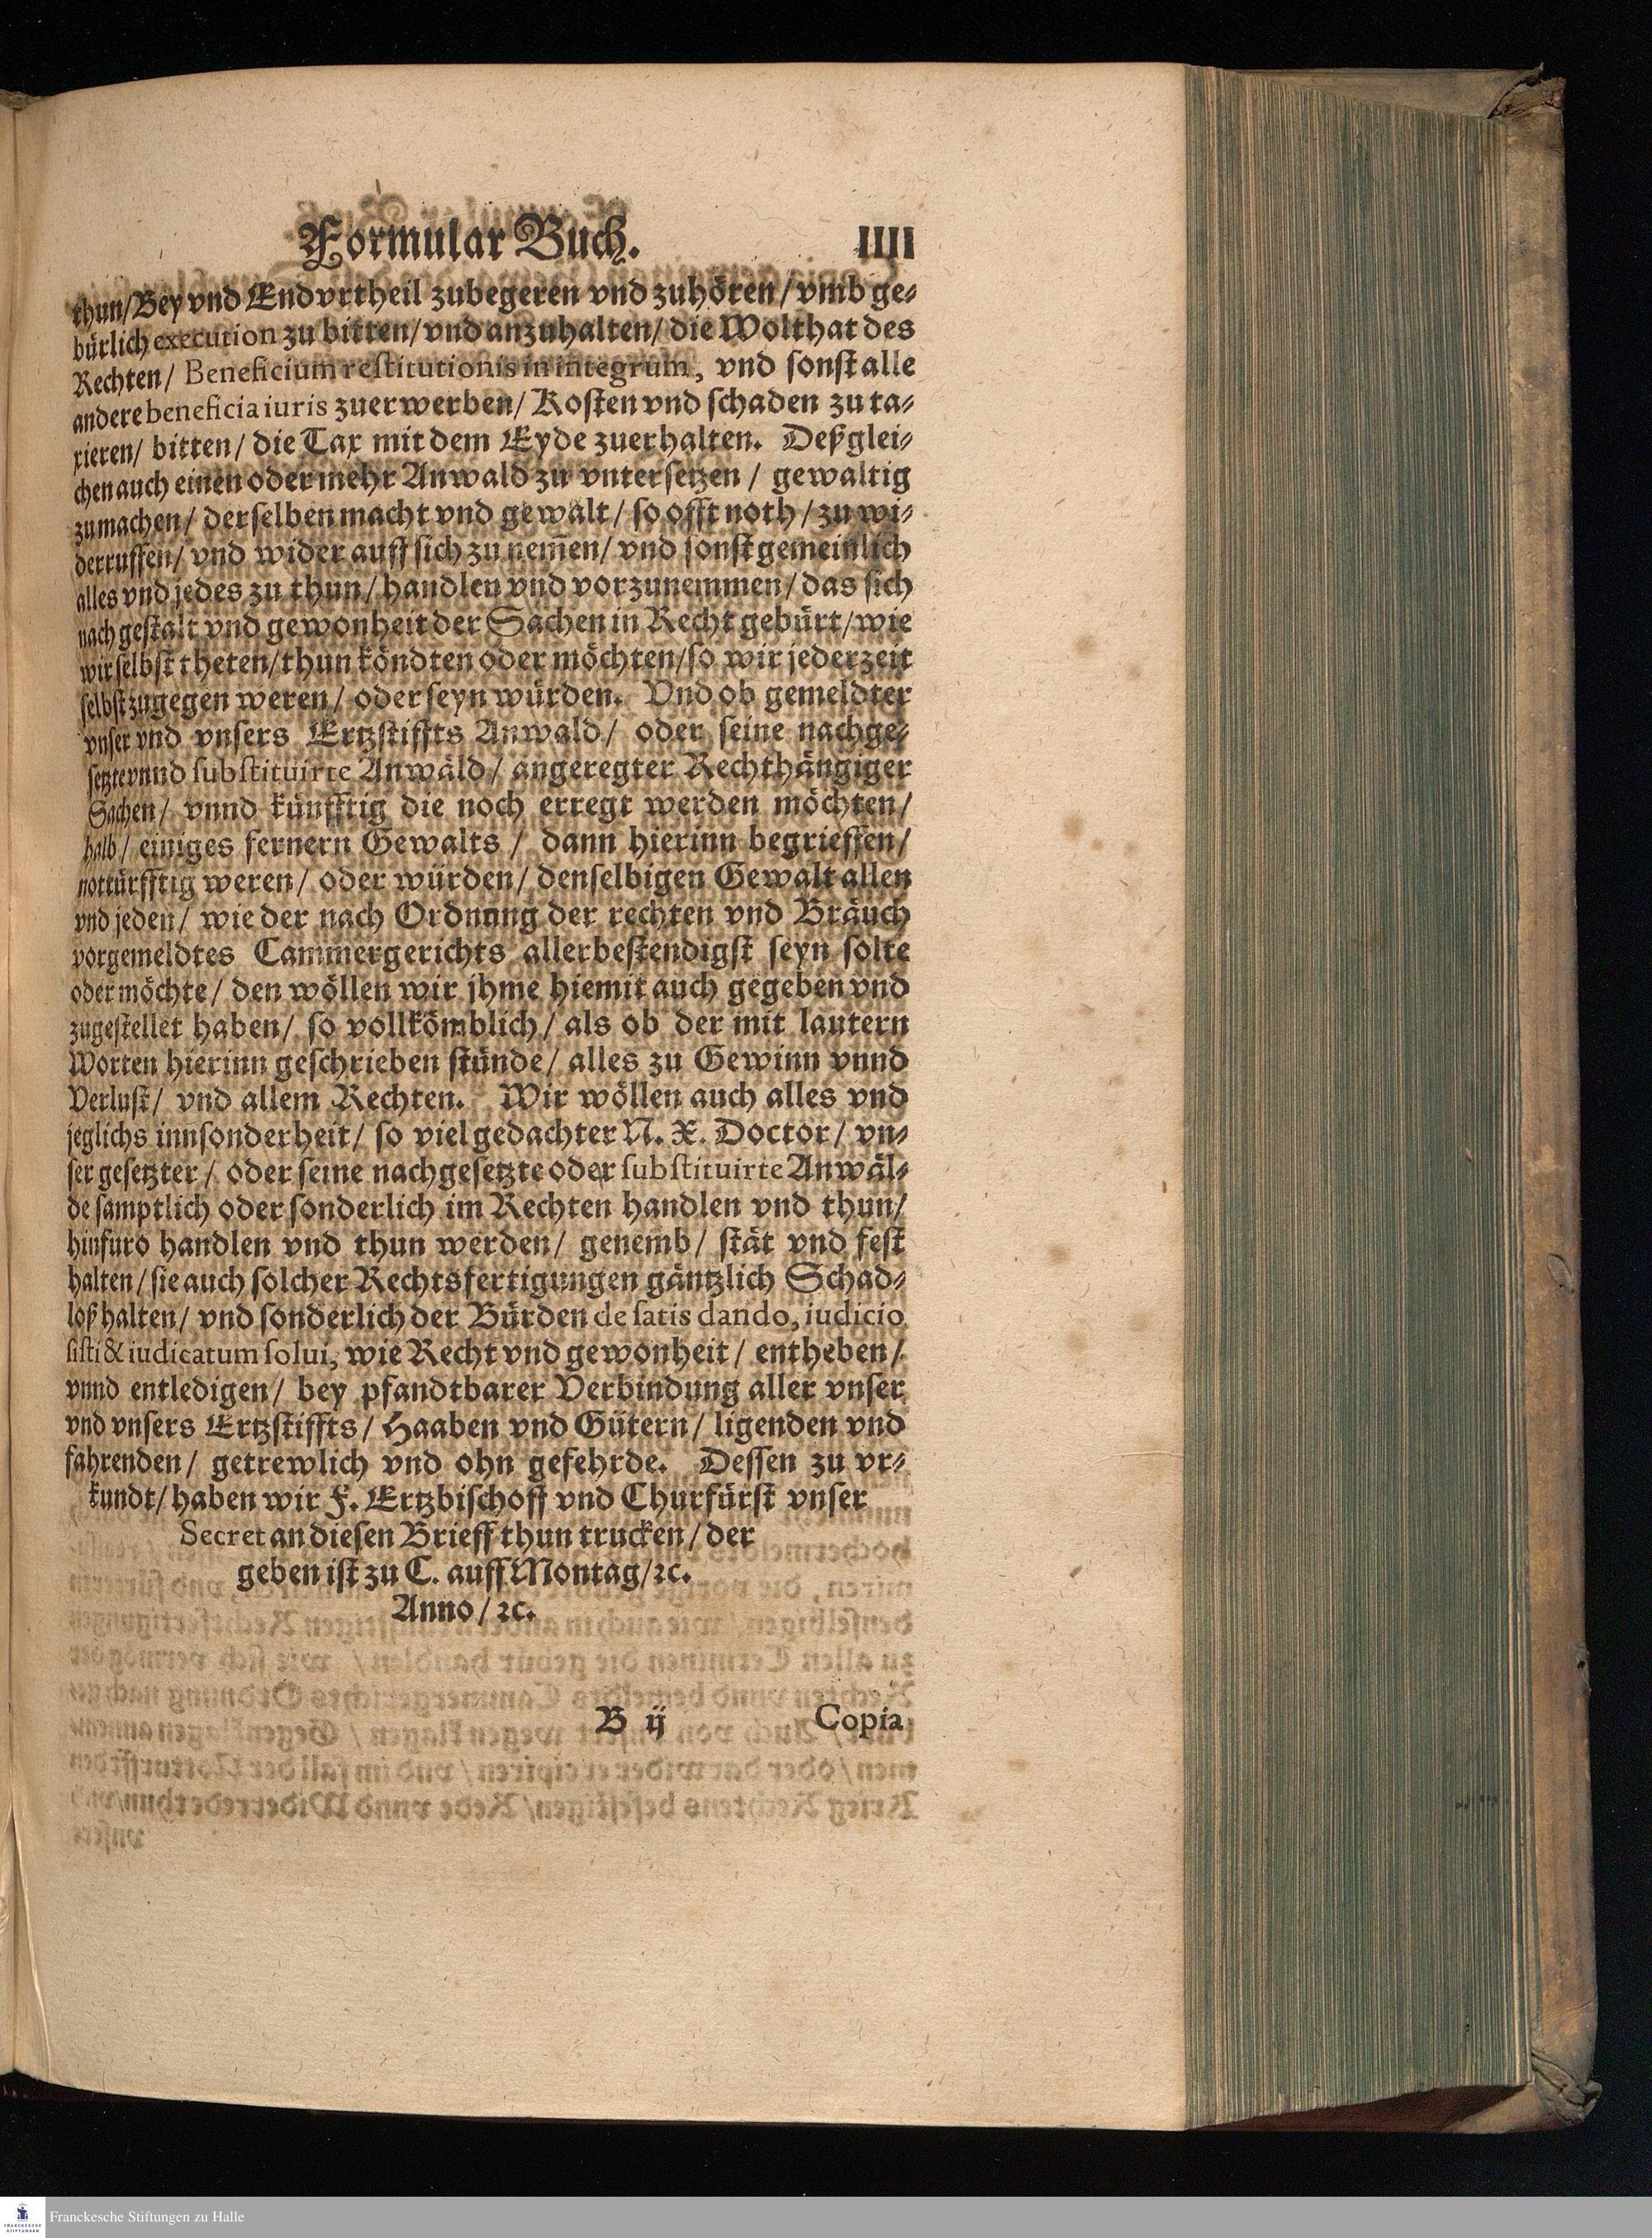 Formular Buch. IIII
thun/Bey vnd Endvrtheil zubegeren vnd zuhören/vmb ge-
bürlich execution zu bitten/vnd anzuhalten/die Wolthat des
Rechten/ Beneficium restitutionis in integrum, vnd sonst alle
andere beneficia iuris zuerwerben/Kosten vnd schaden zu ta-
xieren/ bitten/ die Tax mit dem Eyde zuerhalten. Deßglei-
chen auch einen oder mehr Anwald zu vntersetzen / gewaltig
zumachen/ derselben macht vnd gewalt/ so offt noth/ zu wi-
derruffen/ vnd wider auff sich zu nem̃en/ vnd sonst gemeinlich
alles vnd jedes zu thun/handlen vnd vorzunemmen/das sich
nach gestalt vnd gewonheit der Sachen in Recht gebürt/wie
wir selbst theten/thun köndten oder möchten/so wir jederzeit
selbst zugegen weren/ oder seyn würden. Vnd ob gemeldter
vnser vnd vnsers Ertzstiffts Anwald/ oder seine nachge-
setzte vnnd substituirte Anwäld/ angeregter Rechthängiger
Sachen/ vnnd künfftig die noch erregt werden möchten/
halb/ einiges fernern Gewalts / dann hierinn begrieffen/
nottürfftig weren/ oder würden/ denselbigen Gewalt allen
vnd jeden/ wie der nach Ordnung der rechten vnd Bräuch
vorgemeldtes Cammergerichts allerbestendigst seyn solte
oder möchte/ den wöllen wir jhme hiemit auch gegeben vnd
zugestellet haben/ so vollkömblich/ als ob der mit lautern
Worten hierinn geschrieben stünde/ alles zu Gewinn vnnd
Verlust/ vnd allem Rechten. Wir wöllen auch alles vnd
jeglichs innsonderheit/ so viel gedachter N. X. Doctor/ vn-
ser gesetzter/ oder seine nachgesetzte oder substituirte Anwäl-
de samptlich oder sonderlich im Rechten handlen vnd thun/
hinfuro handlen vnd thun werden/ genemb/ stät vnd fest
halten/sie auch solcher Rechtsfertigungen gäntzlich Schad-
loß halten/ vnd sonderlich der Bürden de satis dando, iudicio
sisti & iudicatum solui, wie Recht vnd gewonheit/ entheben/
vnnd entledigen/ bey pfandtbarer Verbindung aller vnser
vnd vnsers Ertzstiffts/ Haaben vnd Gütern/ ligenden vnd
fahrenden/ getrewlich vnd ohn gefehrde. Dessen zu vr-
kundt/haben wir F. Ertzbischoff vnd Churfürst vnser
Secret an diesen Brieff thun trucken/der
geben ist zu C. auff Montag/ꝛc.
Anno/ꝛc.
B ij Copia
Franckesche Stiftungen zu Halle
FRANCKESCHE
STIFTUNGEN